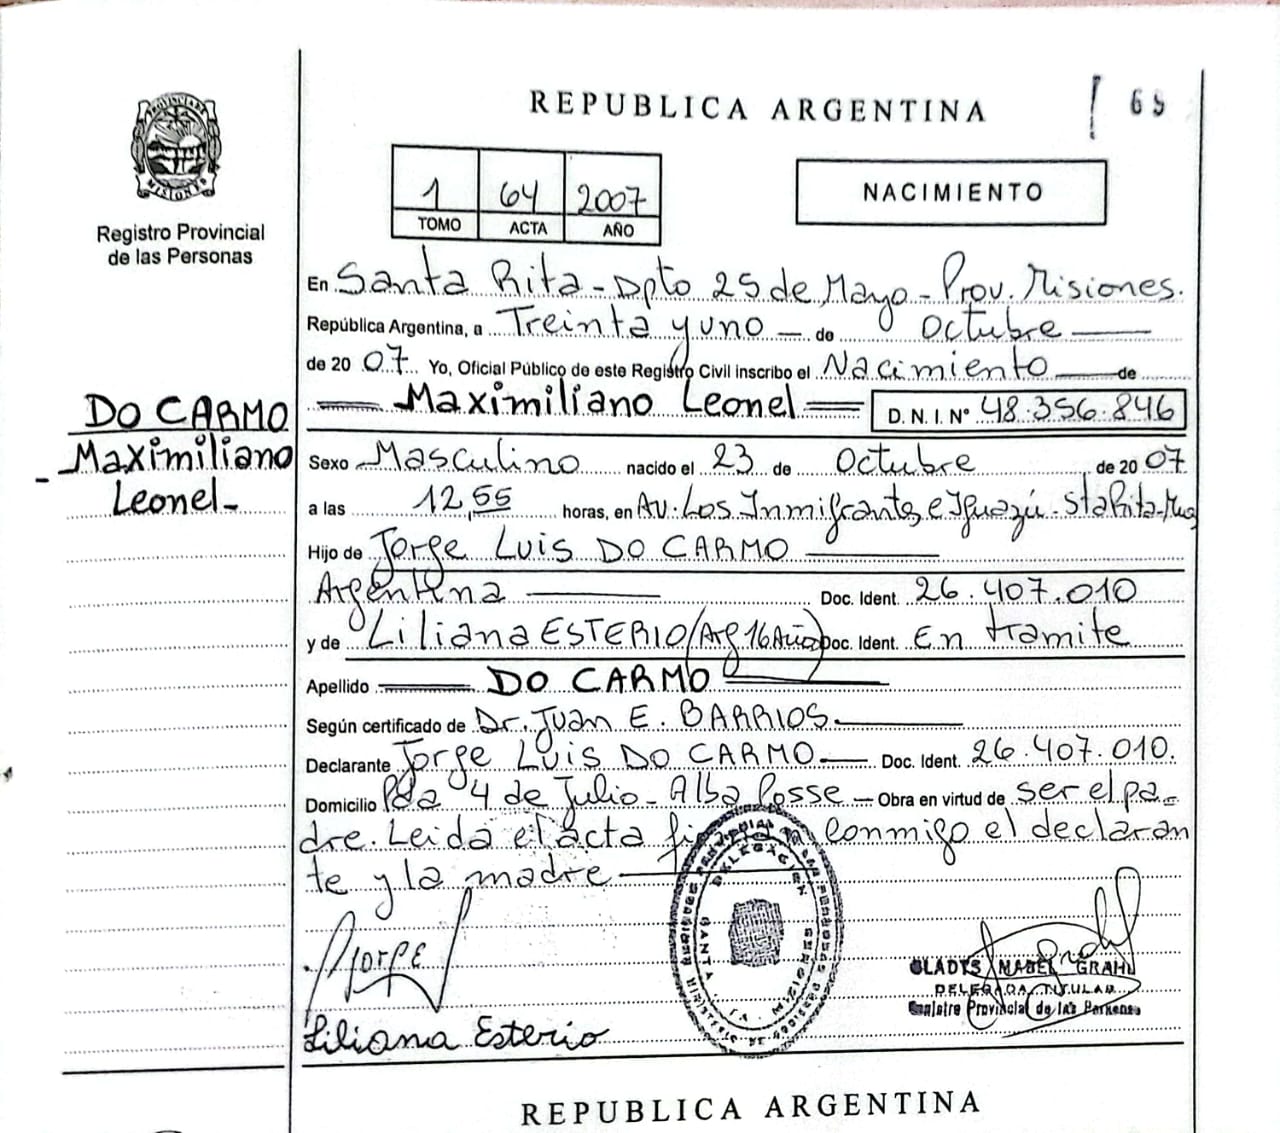 REPUBLICA ARGENTINA
69
Registro Provincial
de las Personas
1 64 2007
TOMO ACTA AÑO
NACIMIENTO
En Santa Rita - Dpto 25 de Mayo - Prov. Misiones.
República Argentina, a Treinta y uno — de Octubre
de 20 07. Yo, Oficial Público de este Registro Civil inscribo el Nacimiento de
Maximiliano Leonel D. N. I. Nº 48.356.846
DO CARMO
Maximiliano
Leonel-
Sexo Masculino nacido el 23 de Octubre de 20 07
a las 12,55 horas, en Av. Los Inmigrantes e Iguazú - Sta Rita - Mnes
Hijo de Jorge Luis DO CARMO
Argentina Doc. Ident. 26.407.010
y de Liliana ESTERIO (Arg 16 Año) Doc. Ident. En tramite
Apellido DO CARMO
Según certificado de Dr. Juan E. BARRIOS
Declarante Jorge Luis DO CARMO — Doc. Ident. 26.407.010.
Domicilio Pda 4 de Julio - Alba Posse — Obra en virtud de ser el pa-
dre. Leida el acta conmigo el declaran
te y la madre
Jorge
Liliana Esterio
DELEGACION
GLADYS MABEL GRAHL
DELEGADA TITULAR
Registro Provincial de las Personas
REPUBLICA ARGENTINA